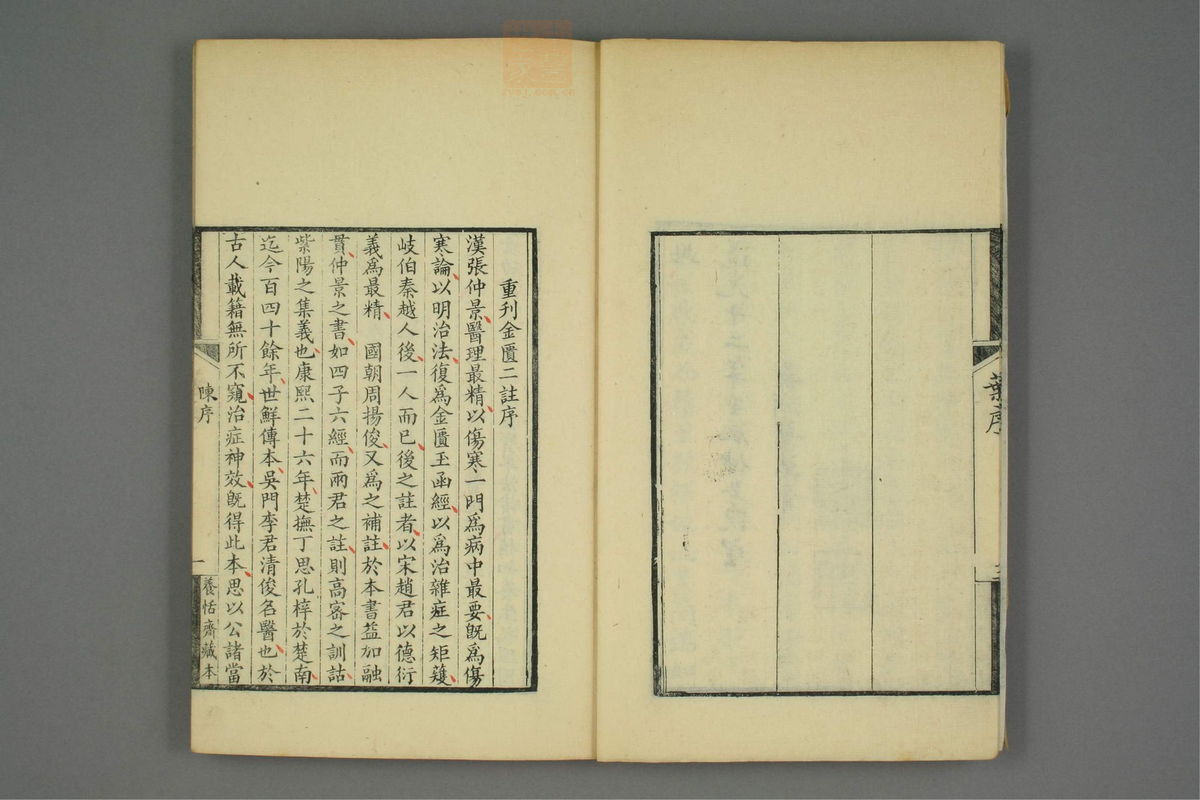 葉序
重刊金匱二註序
漢張仲景醫理最精以傷寒一門爲病中最要既爲傷
寒論以明治法復爲金匱玉函經以爲治雜症之矩矱
岐伯秦越人後一人而已後之註者以宋趙君以德衍
義爲最精 國朝周揚俊又爲之補註於本書益加融
貫仲景之書如四子六經而兩君之註則高密之訓詁
紫陽之集義也康熙二十六年楚撫丁思孔梓於楚南
迄今百四十餘年世鮮傳本吳門李君清俊名醫也於
古人載籍無所不窺治症神效既得此本思以公諸當
陳序
一
養恬齋藏本